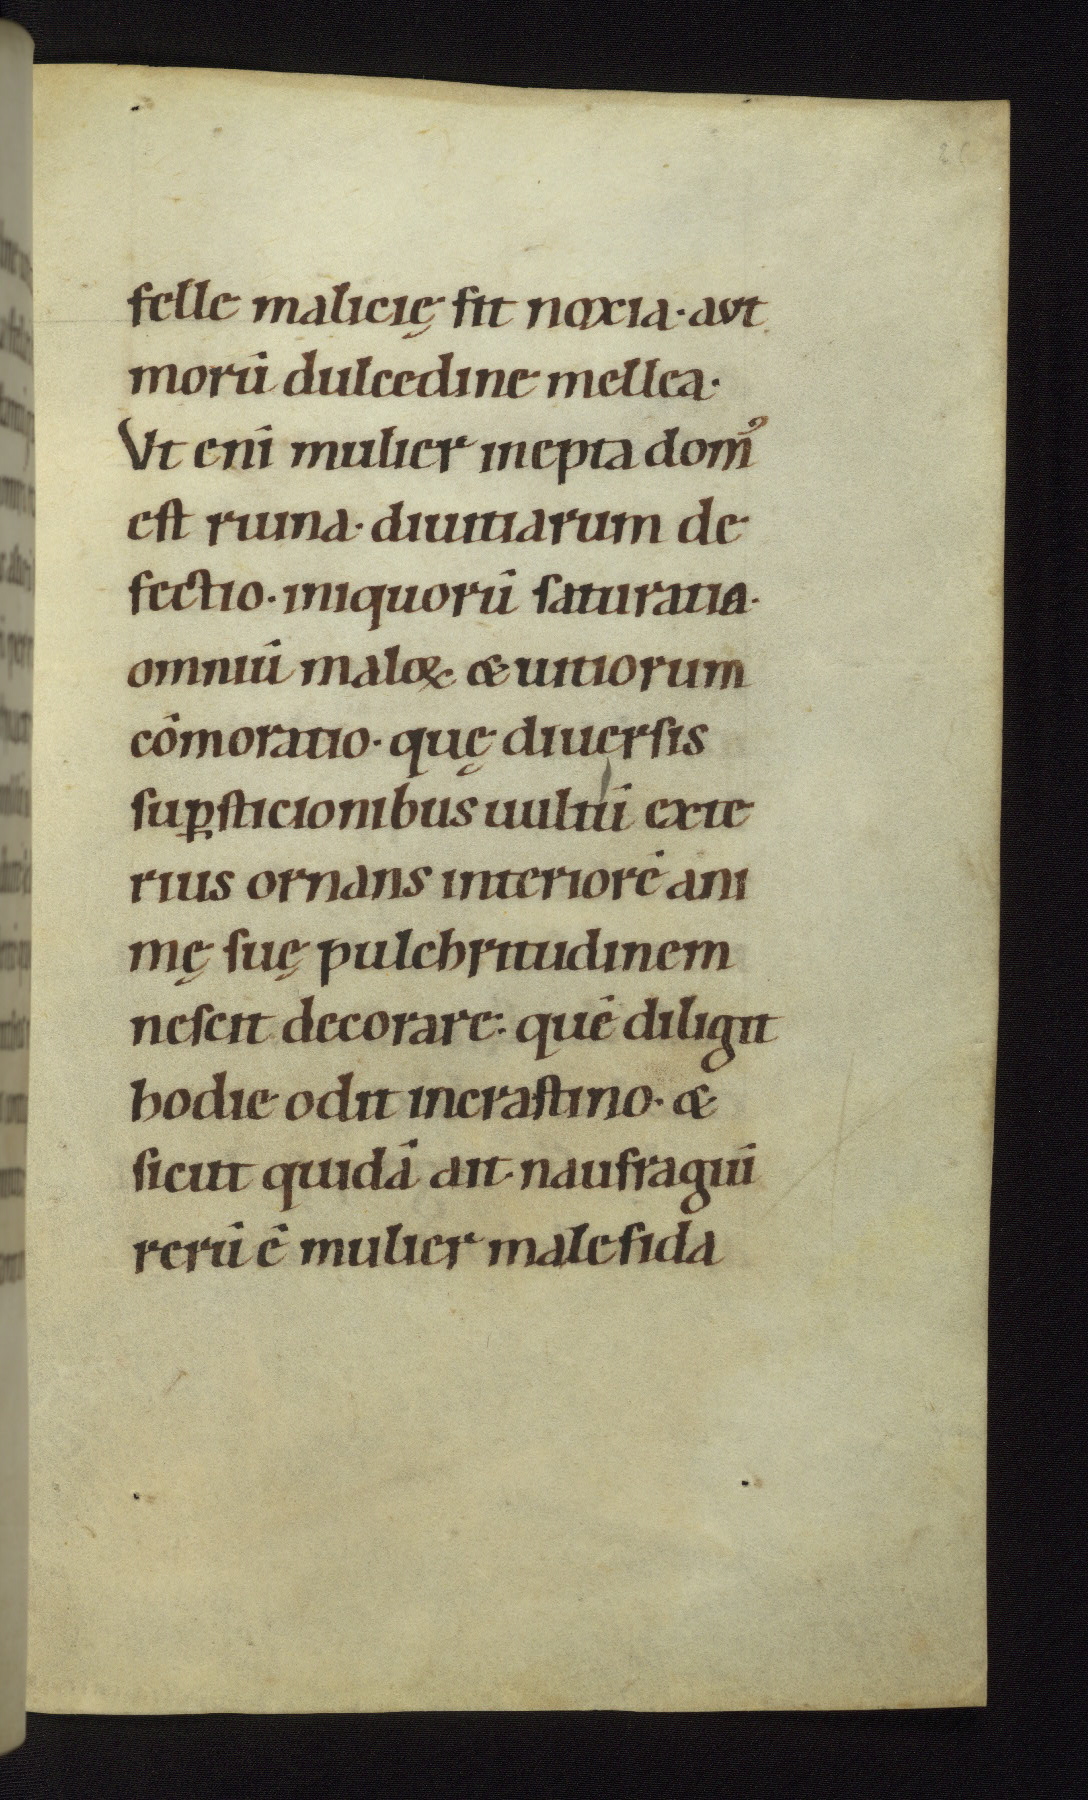 felle malicię sit noxia· aut
morū dulcedine mellea·
Vt enī mulier inepta domꝰ
est ruina· diuitiarum de
fectio· iniquorū saturatio·
omniū maloꝝ & uitiorum
cōmoratio· quę diuersis
suꝑsticionibus uultū exte
rius ornans interiorē ani
mę suę pulchritudinem
nescit decorare: quē diligit
hodie odit incrastino· &
sicut quidā ait· naufragiū
rerū ē mulier malefida